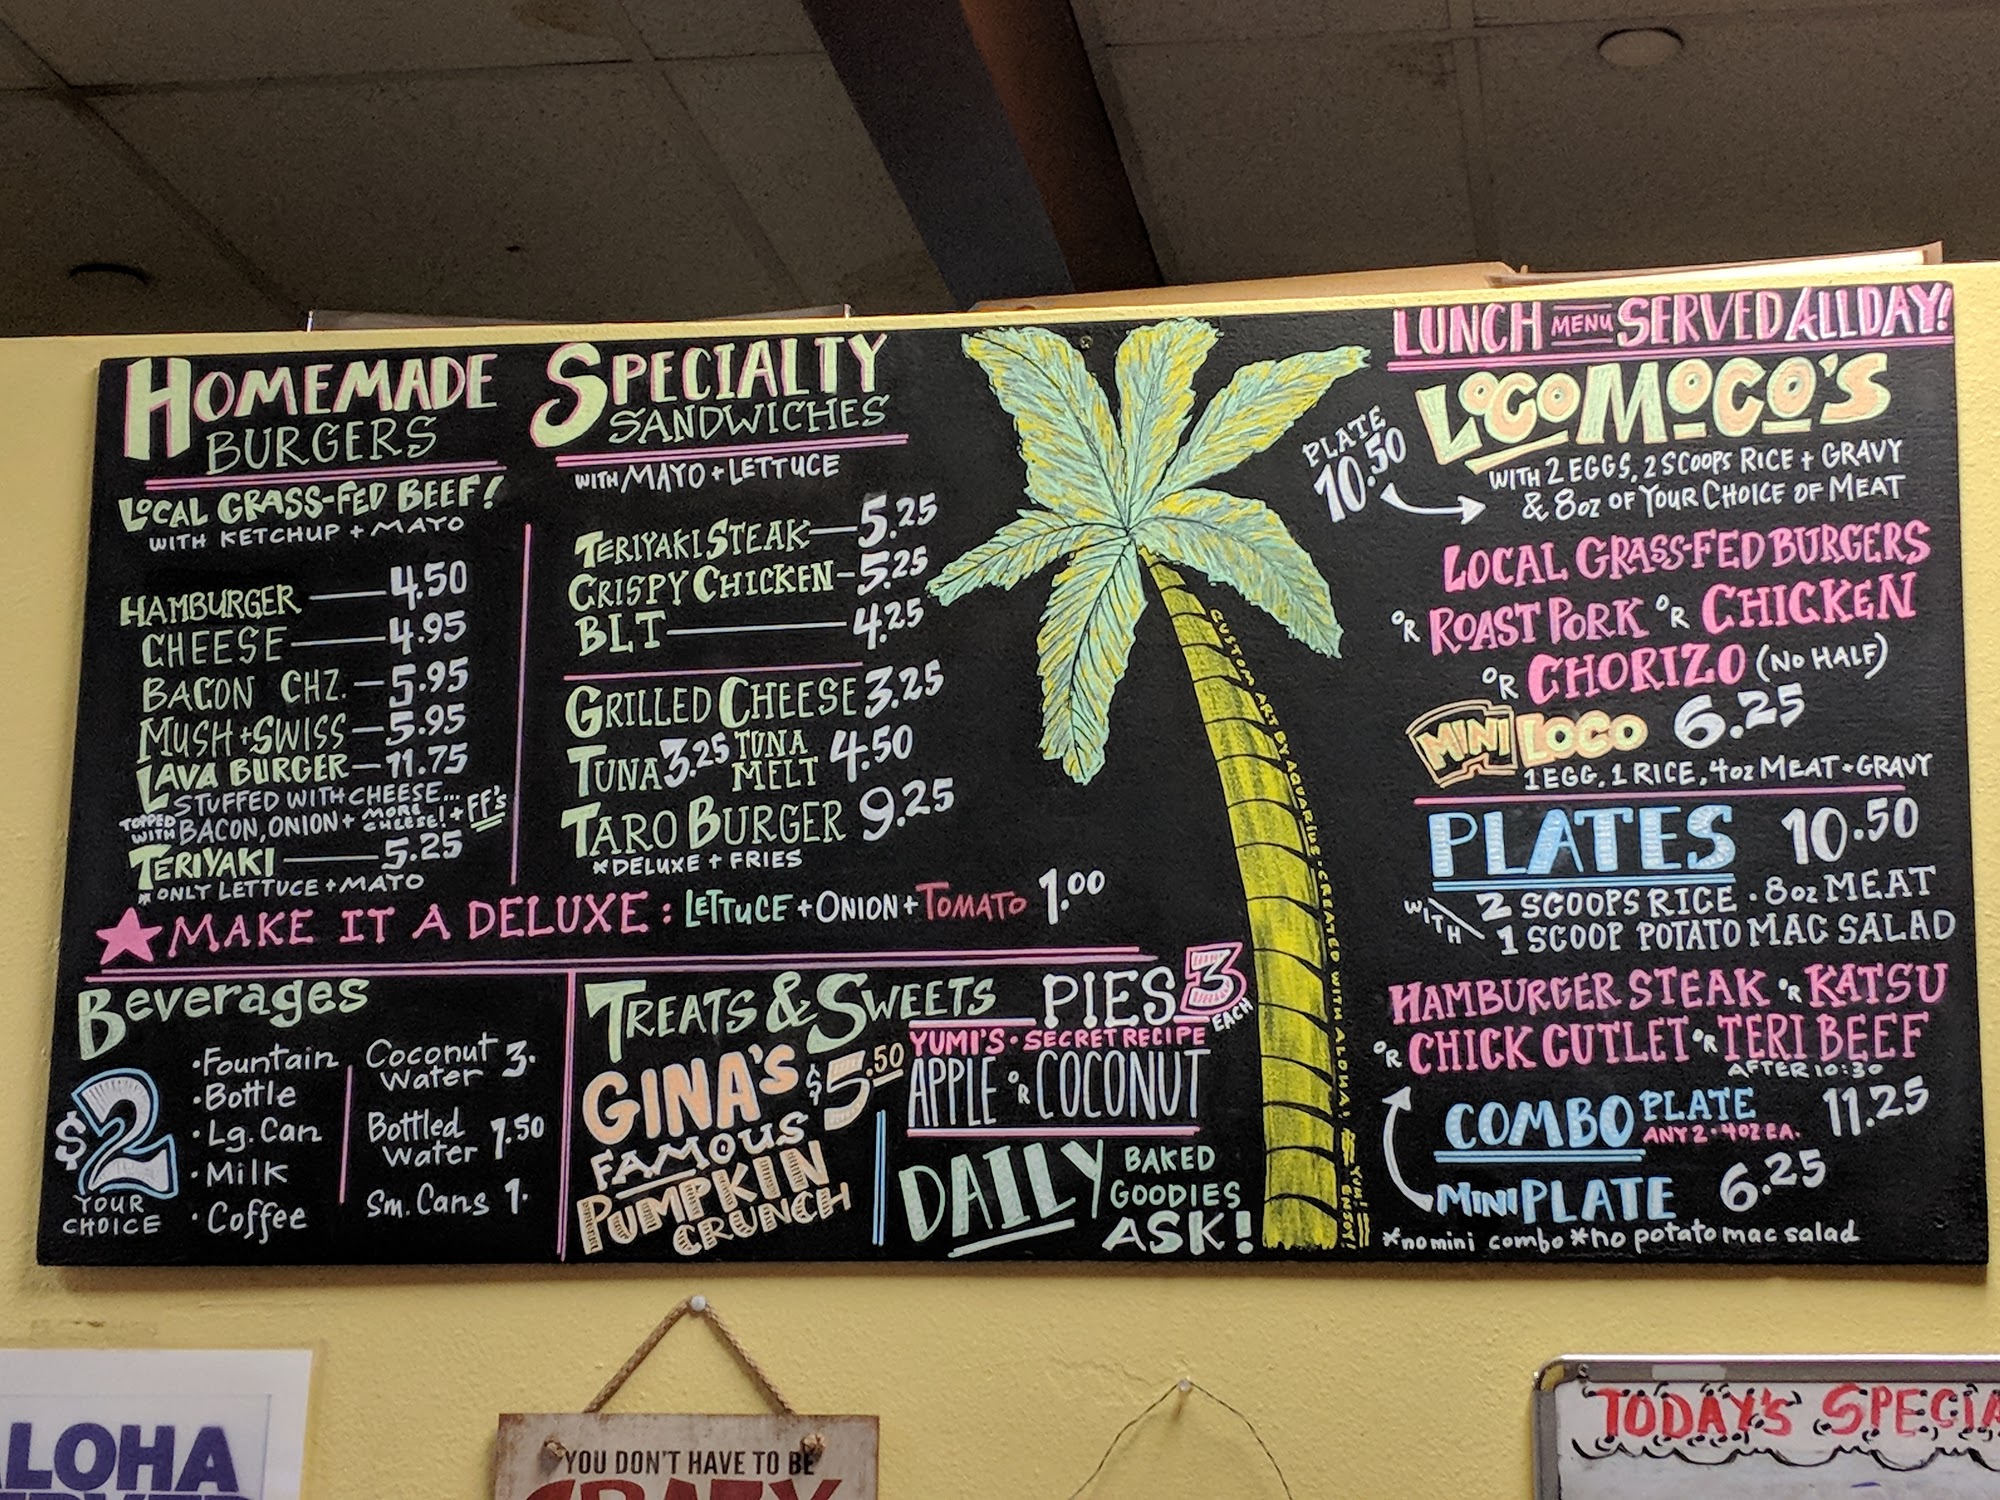 HOMEMADE
BURGERS
LOCAL GRASS-FED BEEF!
WITH KETCHUP + MAYO
HAMBURGER 4.50
CHEESE 4.95
BACON CHZ. 5.95
MUSH + SWISS 5.95
LAVA BURGER 11.75
STUFFED WITH CHEESE...
TOPPED WITH BACON, ONION + MORE CHEESE! + FF's
TERIYAKI 5.25
*ONLY LETTUCE + MAYO
SPECIALTY
SANDWICHES
WITH MAYO + LETTUCE
TERIYAKI STEAK 5.25
CRISPY CHICKEN 5.25
BLT 4.25
GRILLED CHEESE 3.25
TUNA 3.25 TUNA MELT 4.50
TARO BURGER 9.25
*DELUXE + FRIES
MAKE IT A DELUXE: LETTUCE + ONION + TOMATO 1.00
Beverages
$2
YOUR
CHOICE
•Fountain
•Bottle
•Lg. Can
•Milk
•Coffee
Coconut Water 3.
Bottled Water 1.50
Sm. Cans 1.
TREATS & SWEETS
GINA'S $5.50
FAMOUS
PUMPKIN
CRUNCH
PIES 3 EACH
YUMI'S • SECRET RECIPE
APPLE OR COCONUT
DAILY BAKED
GOODIES
ASK!
CUSTOM ART BY AQUARIUS • CREATED WITH ALOHA! YUM! ENJOY!
LUNCH MENU SERVED ALL DAY!
LOCOMOCO'S
PLATE
10.50
WITH 2 EGGS, 2 SCOOPS RICE + GRAVY
& 8oz OF YOUR CHOICE OF MEAT
LOCAL GRASS-FED BURGERS
OR ROAST PORK OR CHICKEN
OR CHORIZO (NO HALF)
MINI LOCO 6.25
1 EGG, 1 RICE, 4oz MEAT • GRAVY
PLATES 10.50
WITH 2 SCOOPS RICE • 8oz MEAT
1 SCOOP POTATO MAC SALAD
HAMBURGER STEAK OR KATSU
OR CHICK CUTLET OR TERI BEEF
AFTER 10:30
COMBO PLATE 11.25
ANY 2 • 4OZ EA.
MINI PLATE 6.25
*no mini combo *no potato mac salad
LOHA
YOU DON'T HAVE TO BE
CRAZY
TODAY'S SPECIA